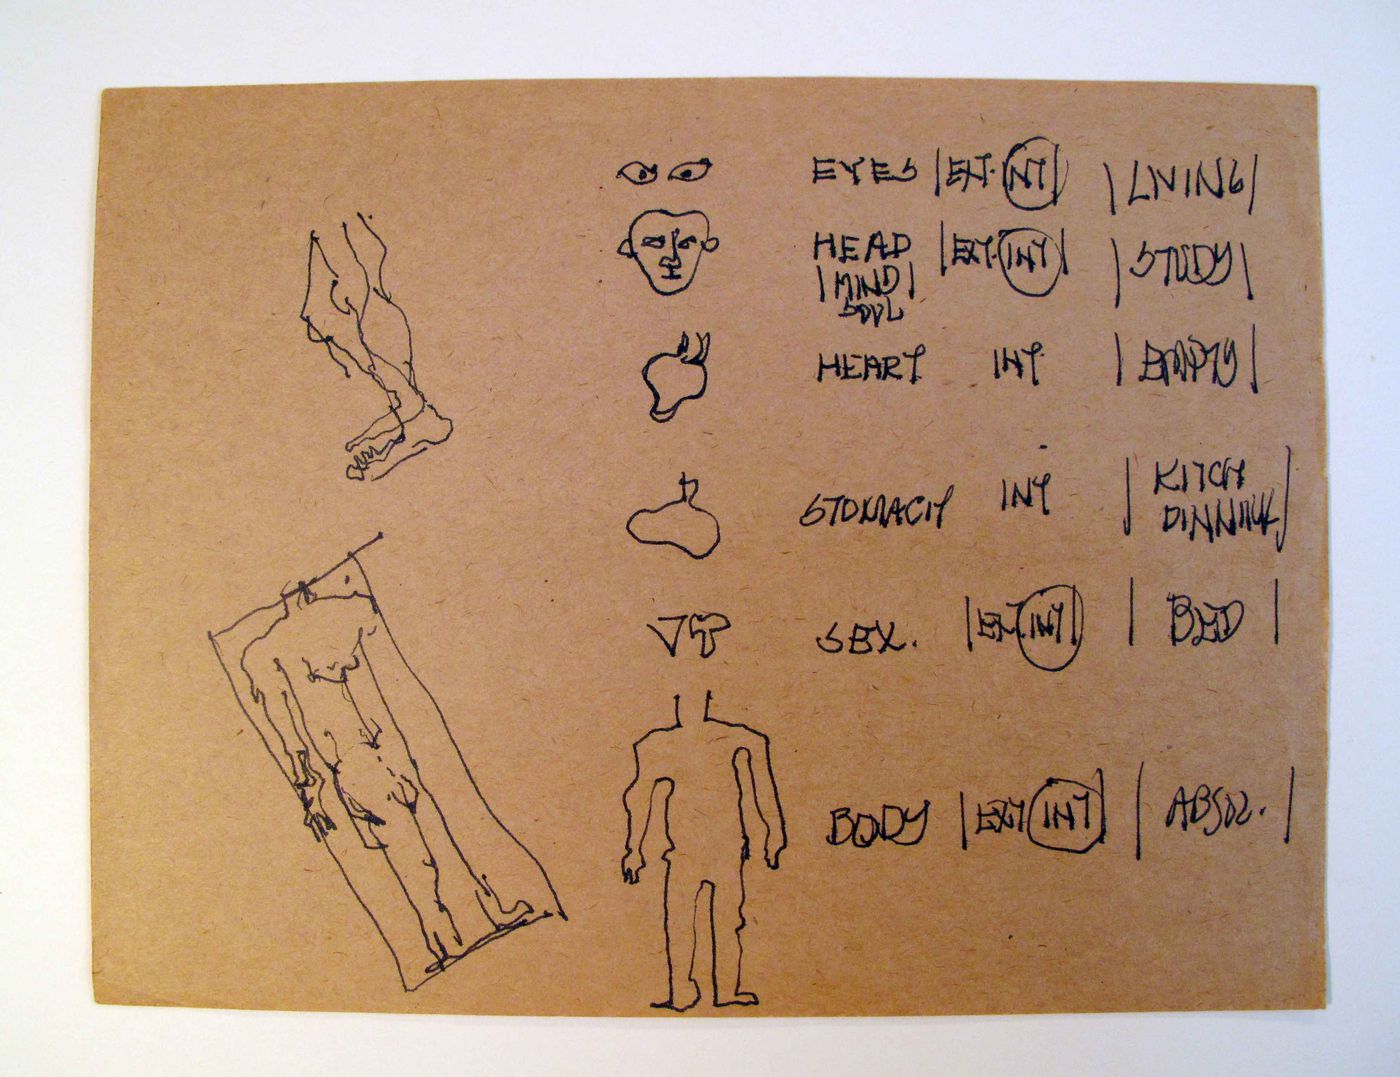 EYES |EXT. INT| |LIVING|
HEAD |EXT. INT| |STUDY|
|MIND|
SOUL
HEART INT. |EMPTY|
STOMACH INT |KITCH
DINNING|
SEX. |EXT INT| |BED|
BODY |EXT INT| |ABSOL.|